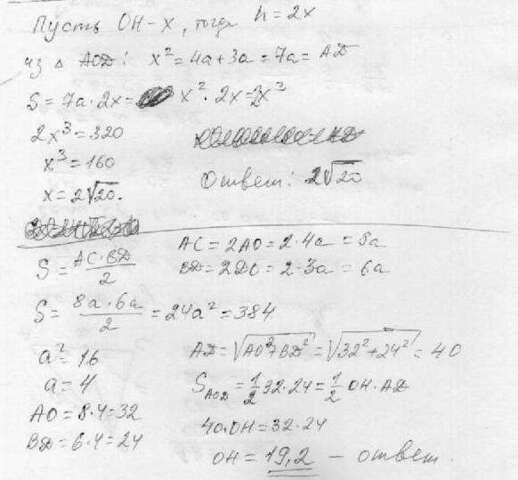 Пусть OH-x, тогда h=2x
из △ AOD: x²=4a+3a=7a=AD
S=7a·2x= x²·2x=2x³
2x³=320
x³=160
x=2√20.
Ответ: 2√20
S=AC·BD/2
AC=2AO=2·4a=8a
BD=2DO=2·3a=6a
S=8a·6a/2=24a²=384
a²=16
a=4
AO=8·4=32
BD=6·4=24
AD=√AO²+BD²=√32²+24²=40
S AOD=1/2 32·24=1/2 OH·AD
40·OH=32·24
OH=19,2 – ответ.